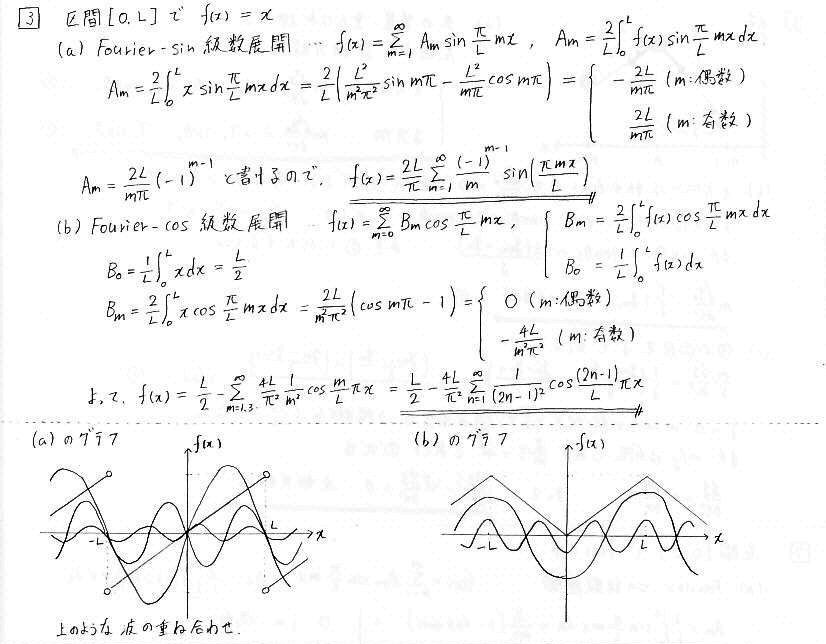 3 区間[0, L]で f(x) = x
(a) Fourier-sin 級数展開 … f(x) = ∑_{m=1}^{∞} Am sin π/L mx , Am = 2/L ∫_0^L f(x) sin π/L mx dx.
Am = 2/L ∫_0^L x sin π/L mx dx = 2/L ( L²/m²π² sin mπ − L²/mπ cos mπ ) = { − 2L/mπ (m:偶数)
2L/mπ (m:奇数)
Am = 2L/mπ (−1)^{m−1} と書けるので, f(x) = 2L/π ∑_{m=1}^{∞} (−1)^{m−1}/m sin(πmx/L)
(b) Fourier-cos 級数展開 … f(x) = ∑_{m=0}^{∞} Bm cos π/L mx , { Bm = 2/L ∫_0^L f(x) cos π/L mx dx
B₀ = 1/L ∫_0^L f(x) dx
B₀ = 1/L ∫_0^L x dx = L/2
Bm = 2/L ∫_0^L x cos π/L mx dx = 2L/m²π² (cos mπ − 1) = { 0 (m:偶数)
− 4L/m²π² (m:奇数)
よって, f(x) = L/2 − ∑_{m=1.3.}^{∞} 4L/π² 1/m² cos m/L πx = L/2 − 4L/π² ∑_{n=1}^{∞} 1/(2n−1)² cos (2n−1)/L πx
(a) のグラフ
f(x)
-L
L
x
上のような 波の重ね合わせ.
(b) のグラフ
f(x)
-L
L
x